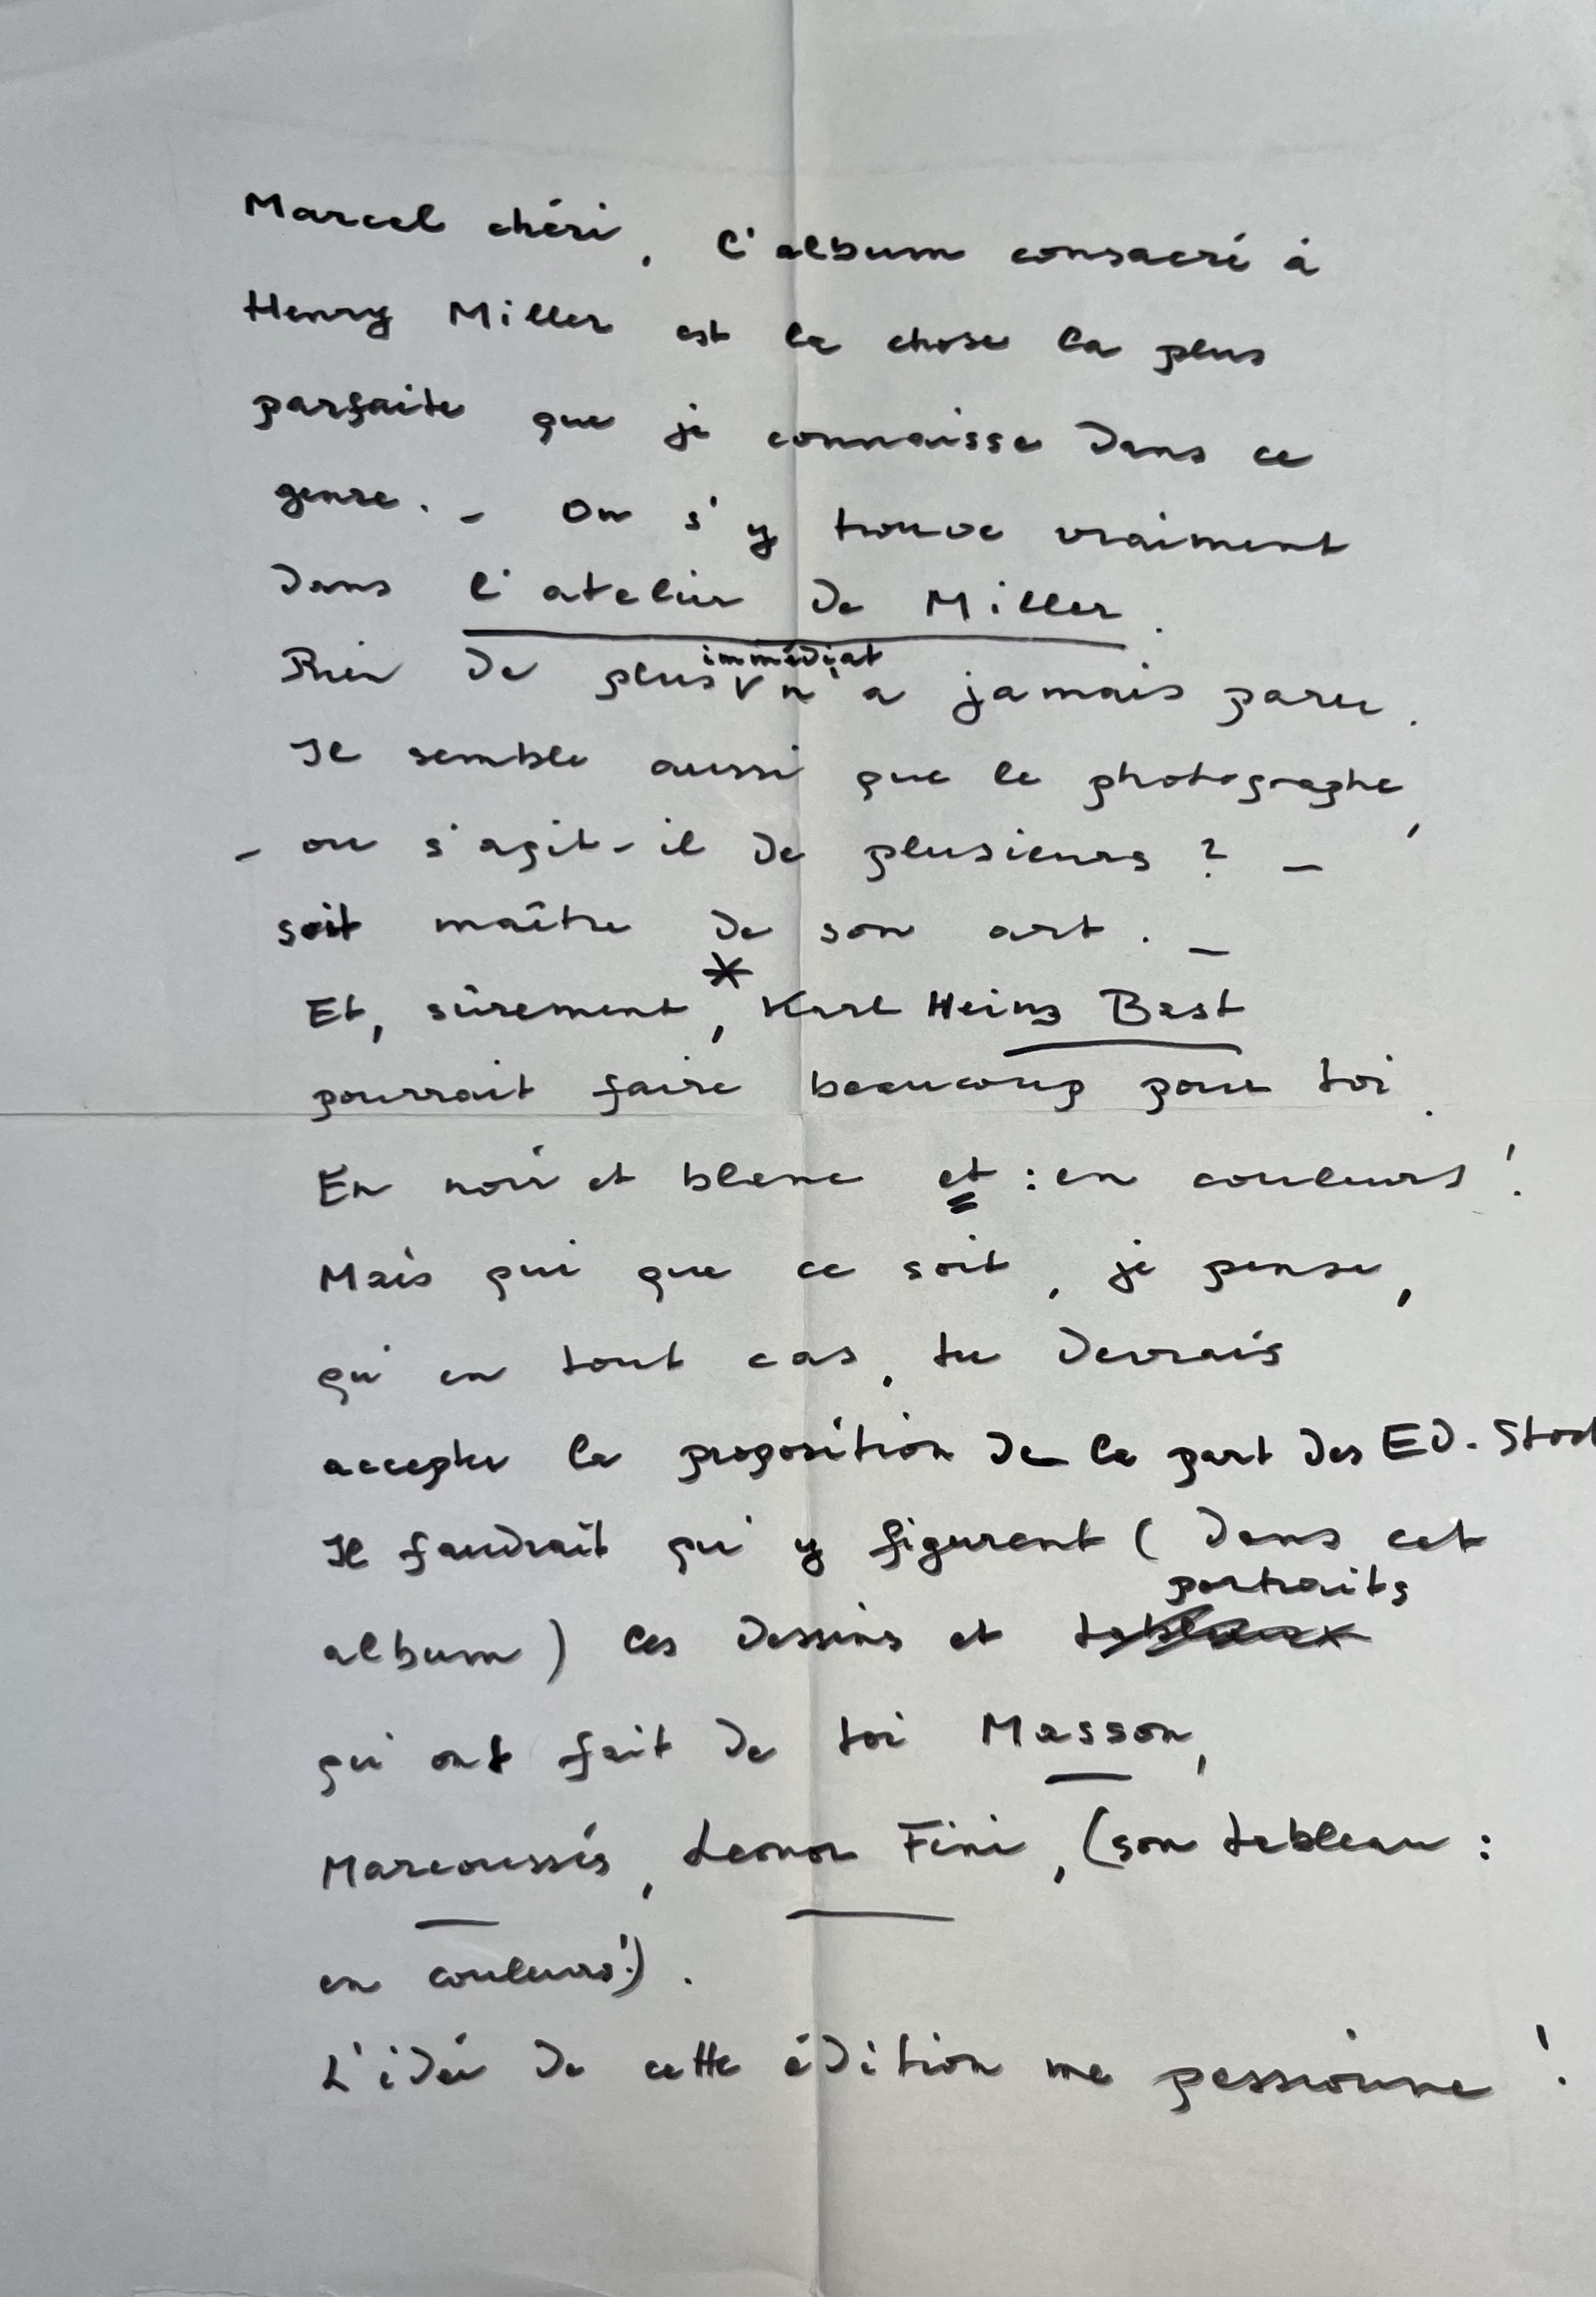 Marcel chéri, l'album consacré à
Henry Miller est la chose la plus
parfaite que je connaisse dans ce
genre. – On s'y trouve vraiment
dans l'atelier de Miller.
immédiat
Rien de plus n'a jamais paru.
Il semble aussi que le photographe,
– ou s'agit-il de plusieurs ? –
soit maître de son art. –
*
Et, sûrement, Karl Heinz Bast
pourrait faire beaucoup pour toi.
En noir et blanc et : en couleurs !
Mais qui que ce soit, je pense,
qu'en tout cas, tu devrais
accepter la proposition de la part des Ed. Stock
Il faudrait qu'y figurent (dans cet
portraits
album) les dessins et tableaux
qui ont fait de toi Masson,
Marcoussis, Leonor Fini, (son tableau :
en couleurs!).
L'idée de cette édition me passionne !